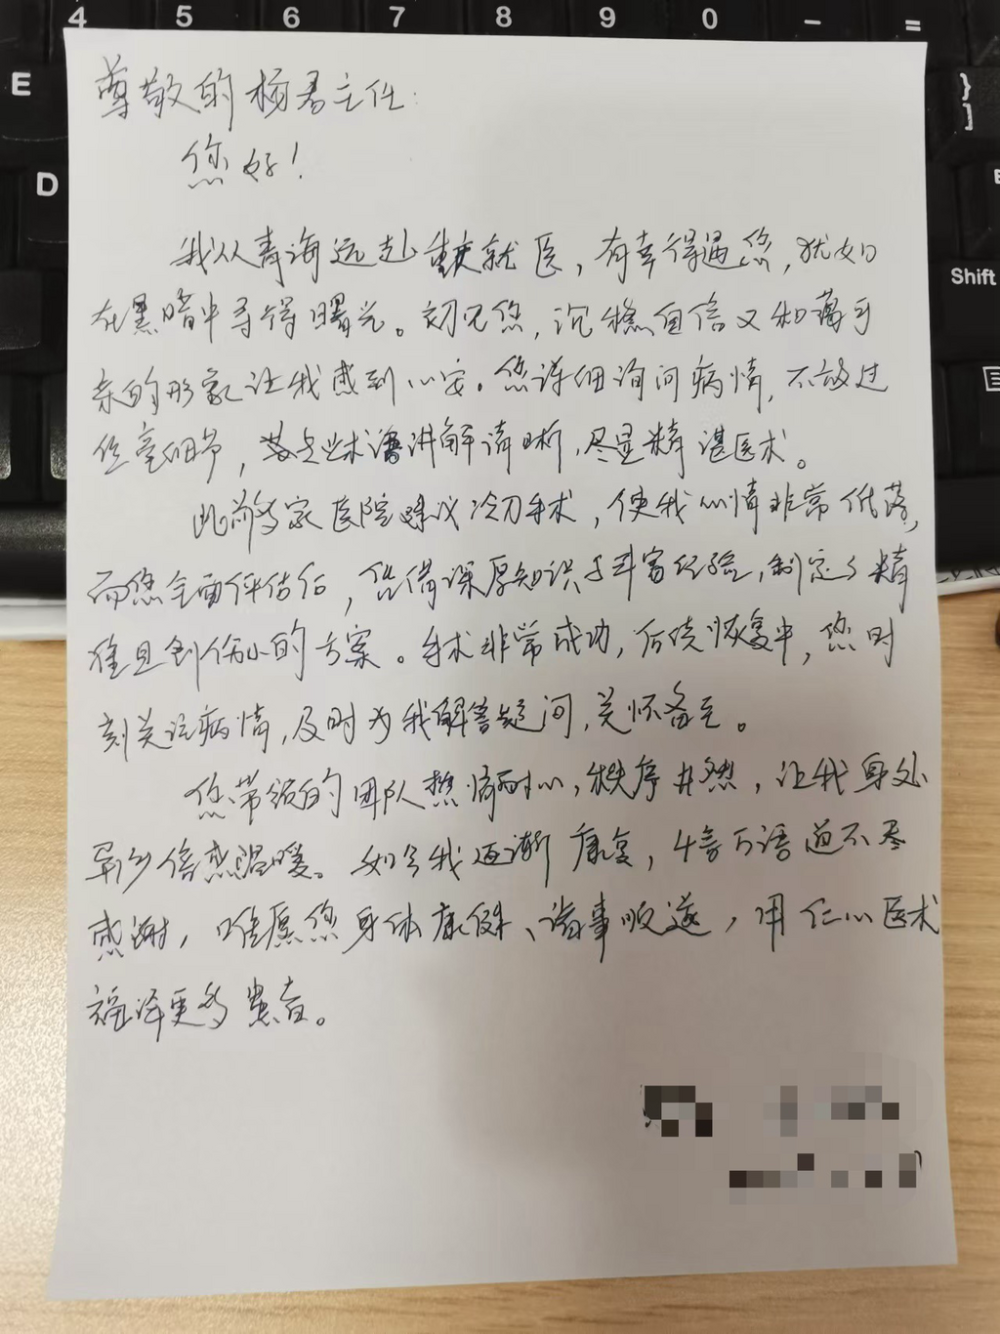 4 5 6 7 8 9 0 - =
E
} ]
D
Shift
尊敬的杨君主任:
您好!
我从青海远赴重庆就医,有幸得遇您,犹如
在黑暗中寻得曙光。初见您,沉稳自信又和蔼可
亲的形象让我感到心安。您详细询问病情,不放过
丝毫细节,专业术语讲解清晰,尽显精湛医术。
此前多家医院建议冷刀手术,使我心情非常低落,
而您全面评估后,凭借深厚知识与丰富经验,制定了精
准且创伤小的方案。手术非常成功,后续恢复中,您时
刻关注病情,及时为我解答疑问,关怀备至。
您带领的团队热情耐心,秩序井然,让我身处
异乡倍感温暖。如今我逐渐康复,千言万语道不尽
感谢,唯愿您身体康健、诸事顺遂,用仁心医术
福泽更多患者。